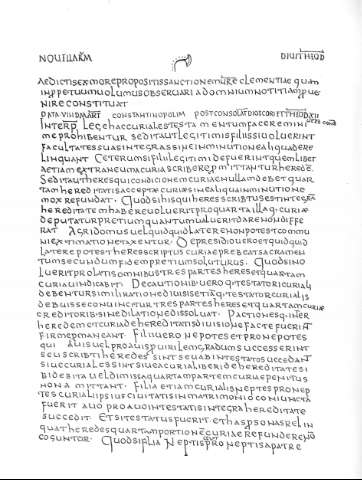 NOUELLARUM DIUI THEOD
AEDICTISEXMOREPROPOSITISSANCTIONEMNRECLEMENTIAE QUAM
INPPETUUMUOLUMUSOBSERUARI ADOMNIUMNOTITIAMPUE
NIRECONSTITUAT
DATA VIIIDMART CONSTANTINOPOLIM POSTCONSOLAT
INTERP LEGEHACCURIALESTESTAMENTUMFACERE
MEPROHIBENTUR SEDITAUTLEGITIMISFILIISSIUOLUERINT
FACULTATESSUASINTEGRASSINEINMINUTIONEALIQUARE
LINQUANT CETERUMSIFILIILEGITIMIDEFUERINTQUEMLIBET
AETIAMEXTRANEUMACURIASCRIBEREPMITTANTURHEREDE
SEDITAUTHERESQUICONDICIONEMCURIAENULLAMDEBETQUAR
TAMHEREDITATISACCEPTAECURIAESINEALIQUAINMINUTIONE
MOXREFUNDAT QUODSIHISQUIHERESSCRIBTUSESTINTEGRA
HEREDITATEMHABEREUOLUERITPROQUARTAILLAQ CURIAE
DEPUTATURPRETIUMQUANTUMUALUERITDARENONDIFFE
RAT AGRIDOMUSUELQUIDQUIDLATERENONPOTESTCOMMU
NIEXTIMATIONETAXENTUR DEPRESIDIOUEROETQUIDQUID
LATEREPOTESTHERESSCRIPTUSCURIAEPREBEATSACRAMEN
TUMSECUNDUMFIDEMPRETIUMSOLUTURUS QUODSINO
LUERITPROLATISOMNIBUSTRESPARTESHERESETQUARTAM
CURIAUINDICABIT DECAUTIONIBUUEROQITESTATORICURIALI
DEBENTURSIMILIRATIONEDIUISISETIAQITESTATORCURIALIS
DEBUISSECONUINCITURTRESPARTESHERESETQUARTAMCURIAE
CREDITORIBSINEDILATIONEDISSOLUAT PACTIONESQINTER
HEREDEMETCURIADEHEREDITATISDIUISIONEFACTEFUERINT
FIRMEPMANEANT FILIUUERONEPOTESETPRONEPOTES
QUI AUISUELPROAUISPUIRILEMGRADUMSUCCESSERINT
SEUSCRIBTIHEREDESSINTSEUABINTESTATOSUCCEDAN
SIUECURIALESSINTSIUEACURIALIBERIDEHEREDITATESI
BIDEBITAUELDIMISSAQUARTAMPARTEMCURIAEPENITUS
NONAMITTANT FILIAETIAMCURIALISNEPTESPRONEP
TESCURIALIIPSIUSCIUITATISINMATRIMONIOCONIUNCTA
FUERITAUOPROAUOINTESTATISINTEGRAHEREDITATE
SUCCEDIT ETSITESTATUSFUERIT
QUATHEREDESQUARTAMPORTIONECURIAEREFUNDERE
COGUNTOR QUODSIFILIA NEPTISPRONEPTISAPATRE